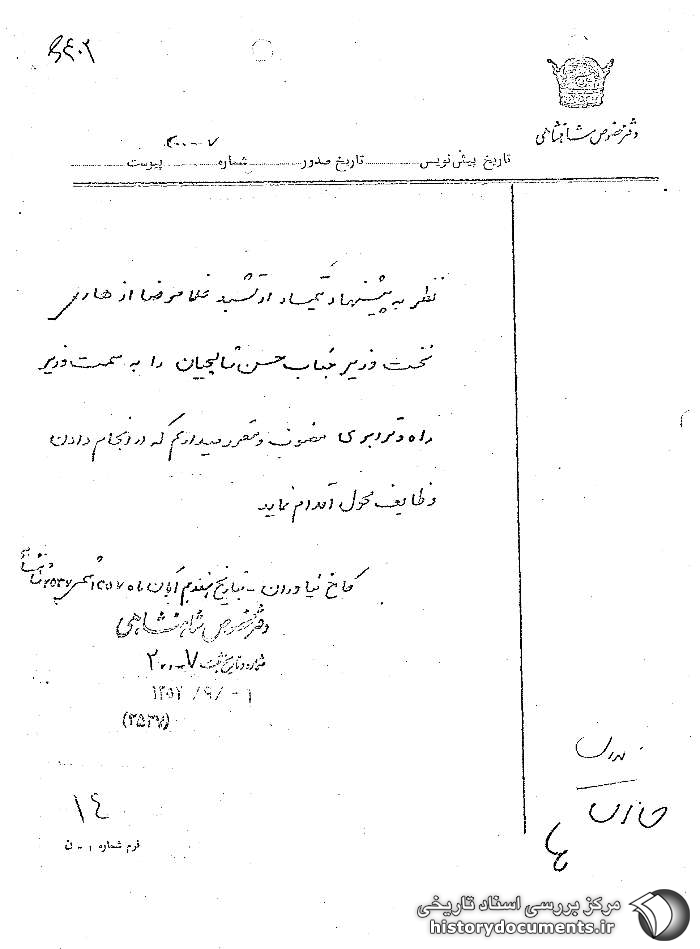 دفتر مخصوص شاهنشاهی
تاریخ پیش‌نویس تاریخ صدور شماره ۷-۲۰۰ پیوست
نظر به پیشنهاد تیمسار ارتشبد غلامرضا ازهاری
نخست وزیر جناب حسن شالچیان را به سمت وزیر
راه و ترابری منصوب و مقرر میداریم که در انجام دادن
وظایف محول اقدام نماید
کاخ نیاوران - بتاریخ آبان ماه ۱۳۵۷ شمسی ۲۵۳۷ شاهنشاهی
دفتر مخصوص شاهنشاهی
شماره و تاریخ ثبت ۷-۲۰۰
۱-/۹/۱۳۵۷
(۲۵۳۷)
۱۴
فرم شماره ۱ - ن
مرکز بررسی اسناد تاریخی
historydocuments.ir